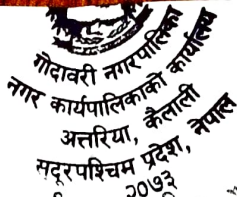 गोदावरी नगरपालिका
नगर कार्यपालिकाको कार्यालय
अत्तरिया, कैलाली
सदूरपश्चिम प्रदेश, नेपाल
२०७३